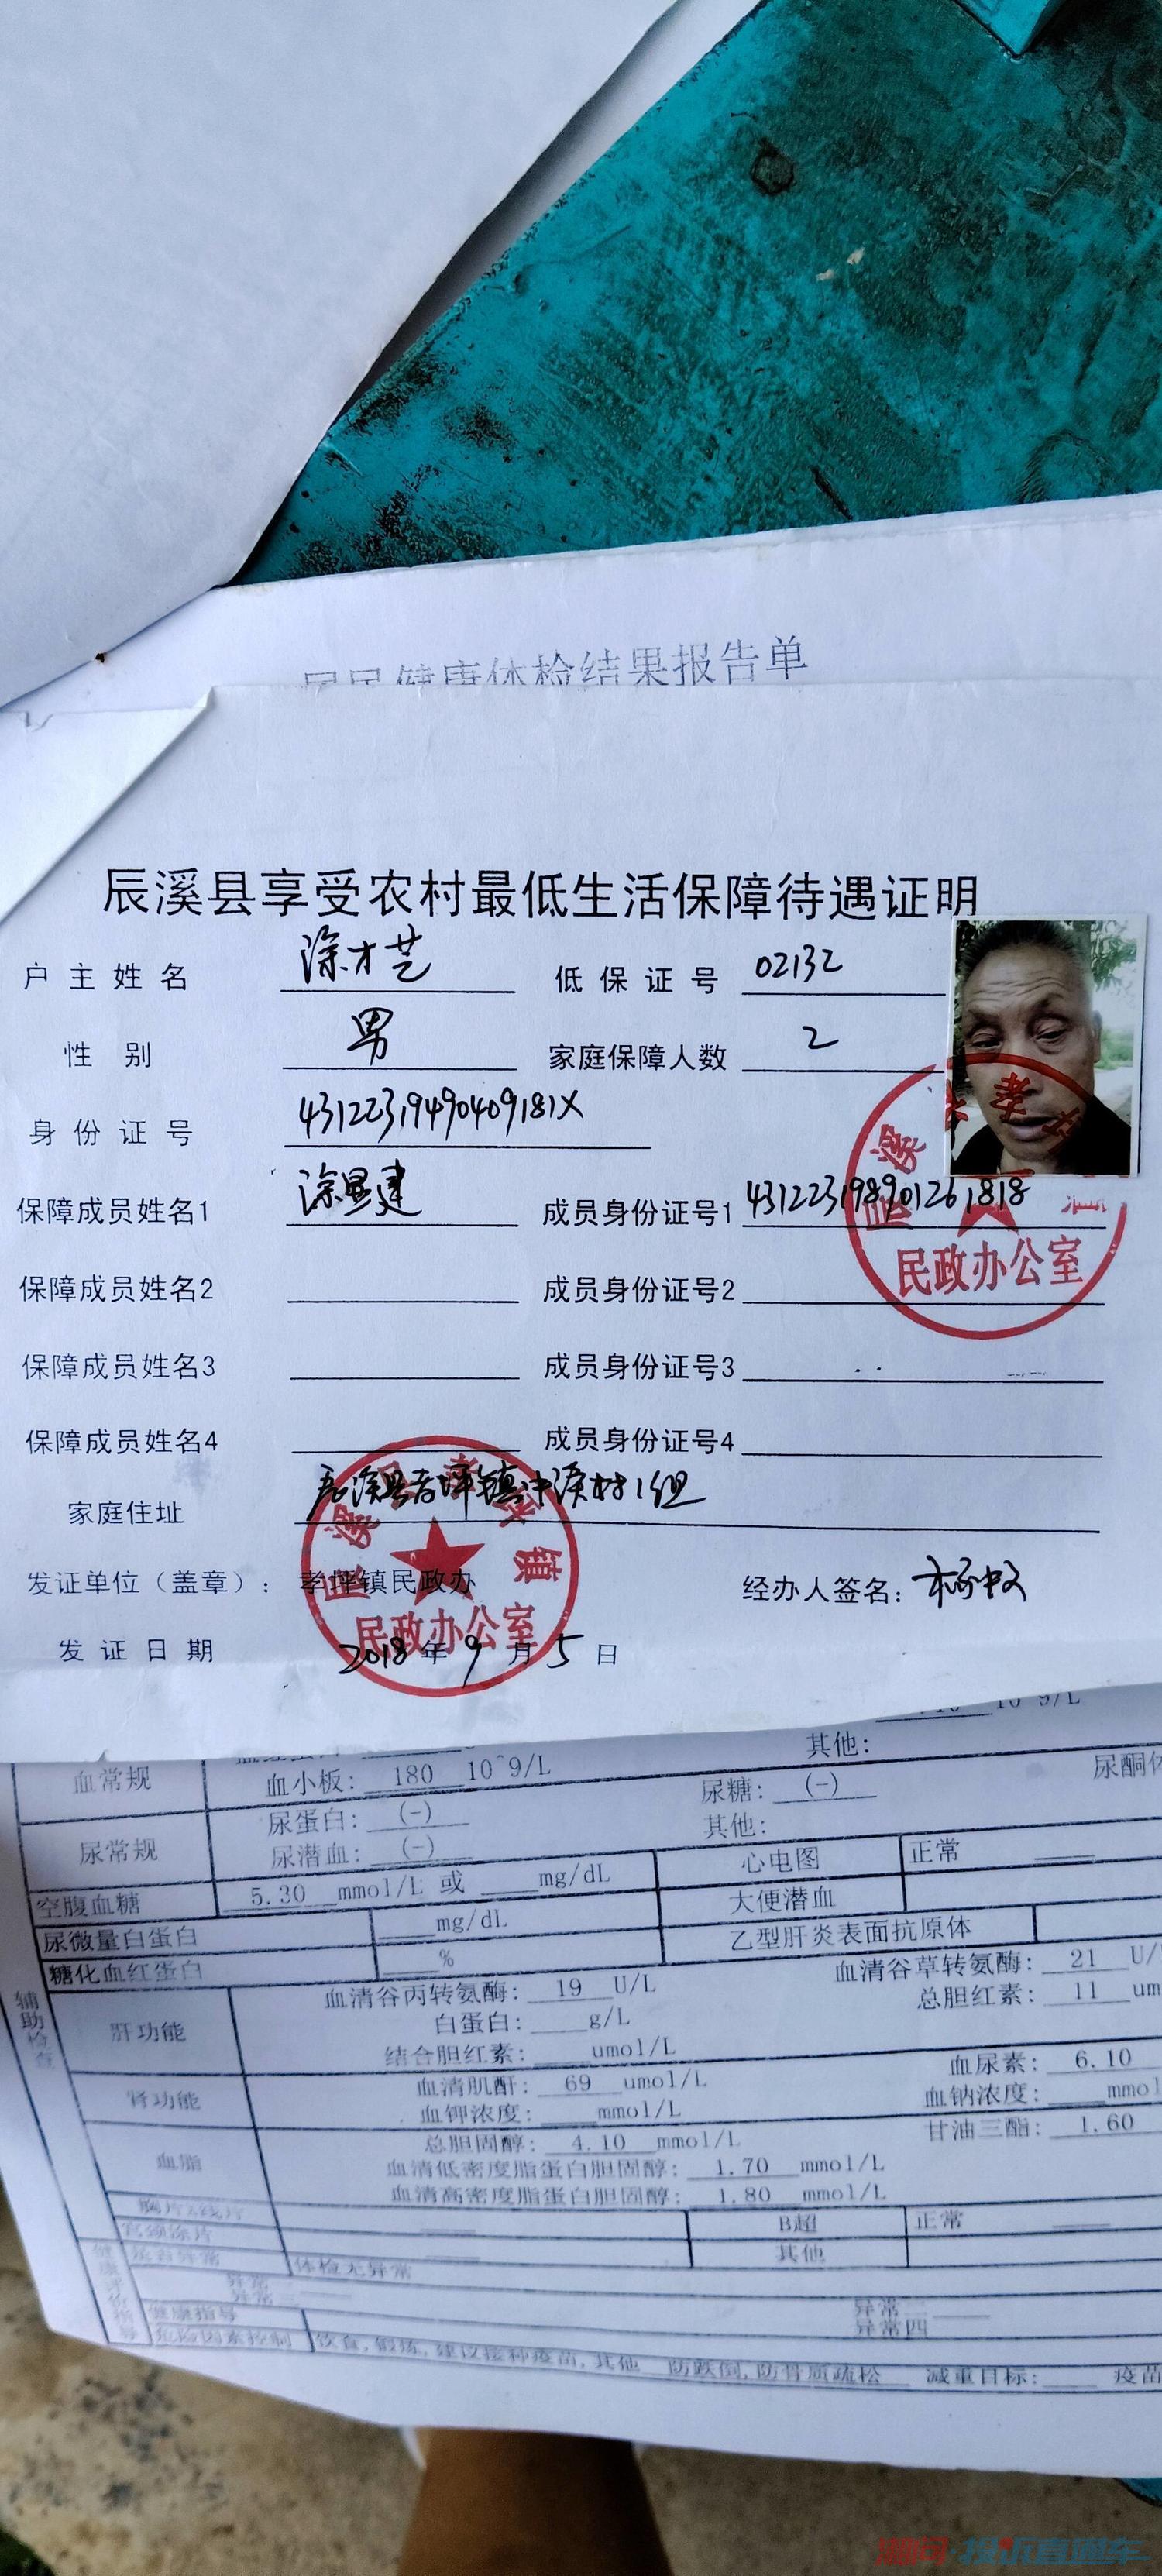 居民健康体检结果报告单
辰溪县享受农村最低生活保障待遇证明
户主姓名 涂才艺 低保证号 02132
性别 男 家庭保障人数 2
身份证号 43122319490409181X
保障成员姓名1 涂显建 成员身份证号1 431223198901261818
保障成员姓名2 成员身份证号2
保障成员姓名3 成员身份证号3
保障成员姓名4 成员身份证号4
家庭住址 辰溪县孝坪镇中溪村1组
发证单位（盖章）： 孝坪镇民政办 经办人签名：
发证日期 2018年9月5日
民政办公室
辰溪县孝坪镇
民政办公室
10^9/L
血常规 血小板: 180 10^9/L 其他:
尿常规 尿蛋白: (-) 尿糖: (-) 尿酮体
尿潜血: (-) 其他:
空腹血糖 5.30 mmol/L 或 mg/dL 心电图 正常
尿微量白蛋白 mg/dL 大便潜血
糖化血红蛋白 % 乙型肝炎表面抗原体
辅助检查
肝功能 血清谷丙转氨酶: 19 U/L 血清谷草转氨酶: 21 U/
白蛋白: g/L 总胆红素: 11 um
结合胆红素: umol/L
肾功能 血清肌酐: 69 umol/L 血尿素: 6.10
血钾浓度: mmol/L 血钠浓度: mmol
血脂 总胆固醇: 4.10 mmol/L 甘油三酯: 1.60
血清低密度脂蛋白胆固醇: 1.70 mmol/L
血清高密度脂蛋白胆固醇: 1.80 mmol/L
胸片X线片 B超 正常
宫颈涂片 其他
是否异常 体检无异常
异常 异常二
异常三 异常四
健康指导
危险因素控制 饮食,锻炼,建议接种疫苗,其他 防跌倒,防骨质疏松 减重目标: 疫苗
湘问·投诉直通车